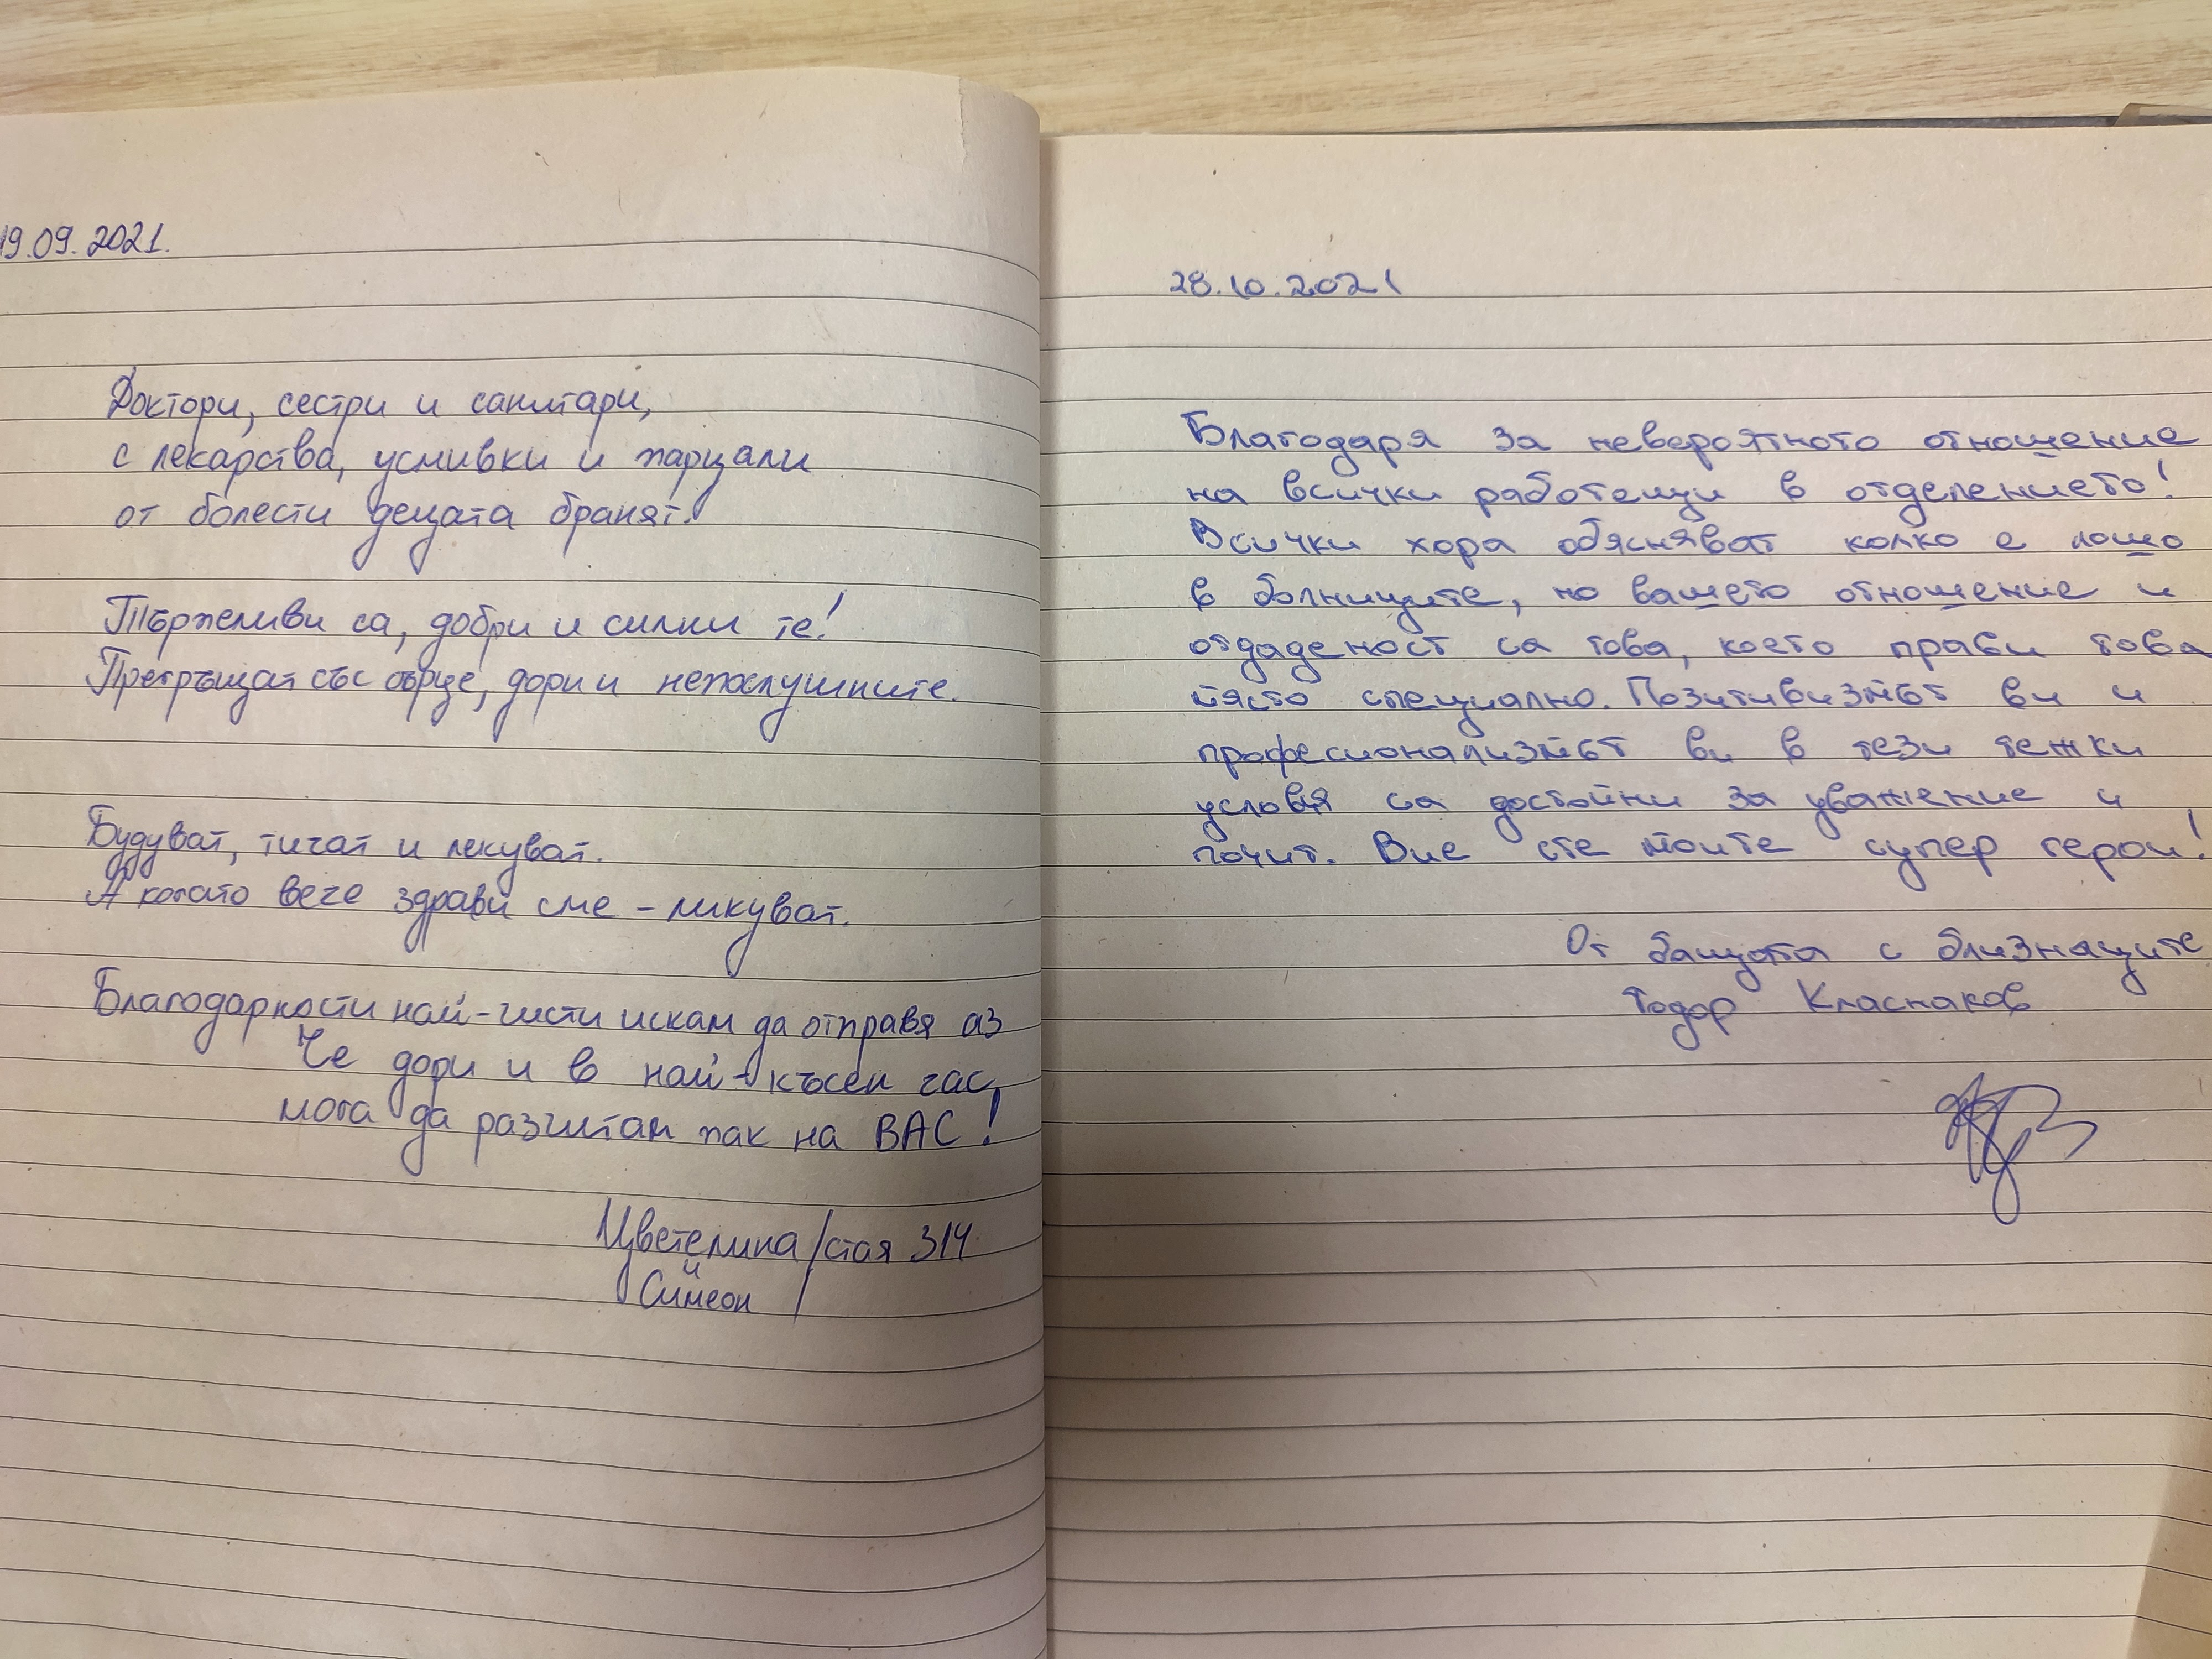 19.09.2021.
Доктори, сестри и санитари,
с лекарства, усмивки и парцали
от болести децата бранят.
Търпеливи са, добри и силни те!
Прегръщат със сърце, дори и непослушните.
Будуват, тичат и лекуват.
А когато вече здрави сме - ликуват.
Благодарности най-чисти искам да отправя аз
Че дори и в най-късен час,
мога да разчитам пак на ВАС!
Цветелина /стая 314
и
Симеон /
28.10.2021
Благодаря за невероятното отношение
на всички работещи в отделението!
Всички хора обясняват колко е лошо
в болниците, но вашето отношение и
отдаденост са това, което прави това
място специално. Позитивизмът ви и
професионализмът ви в тези тежки
условя са достойни за уважение и
почит. Вие сте моите супер герои!
От бащата с близнаците
Тодор Класнаков